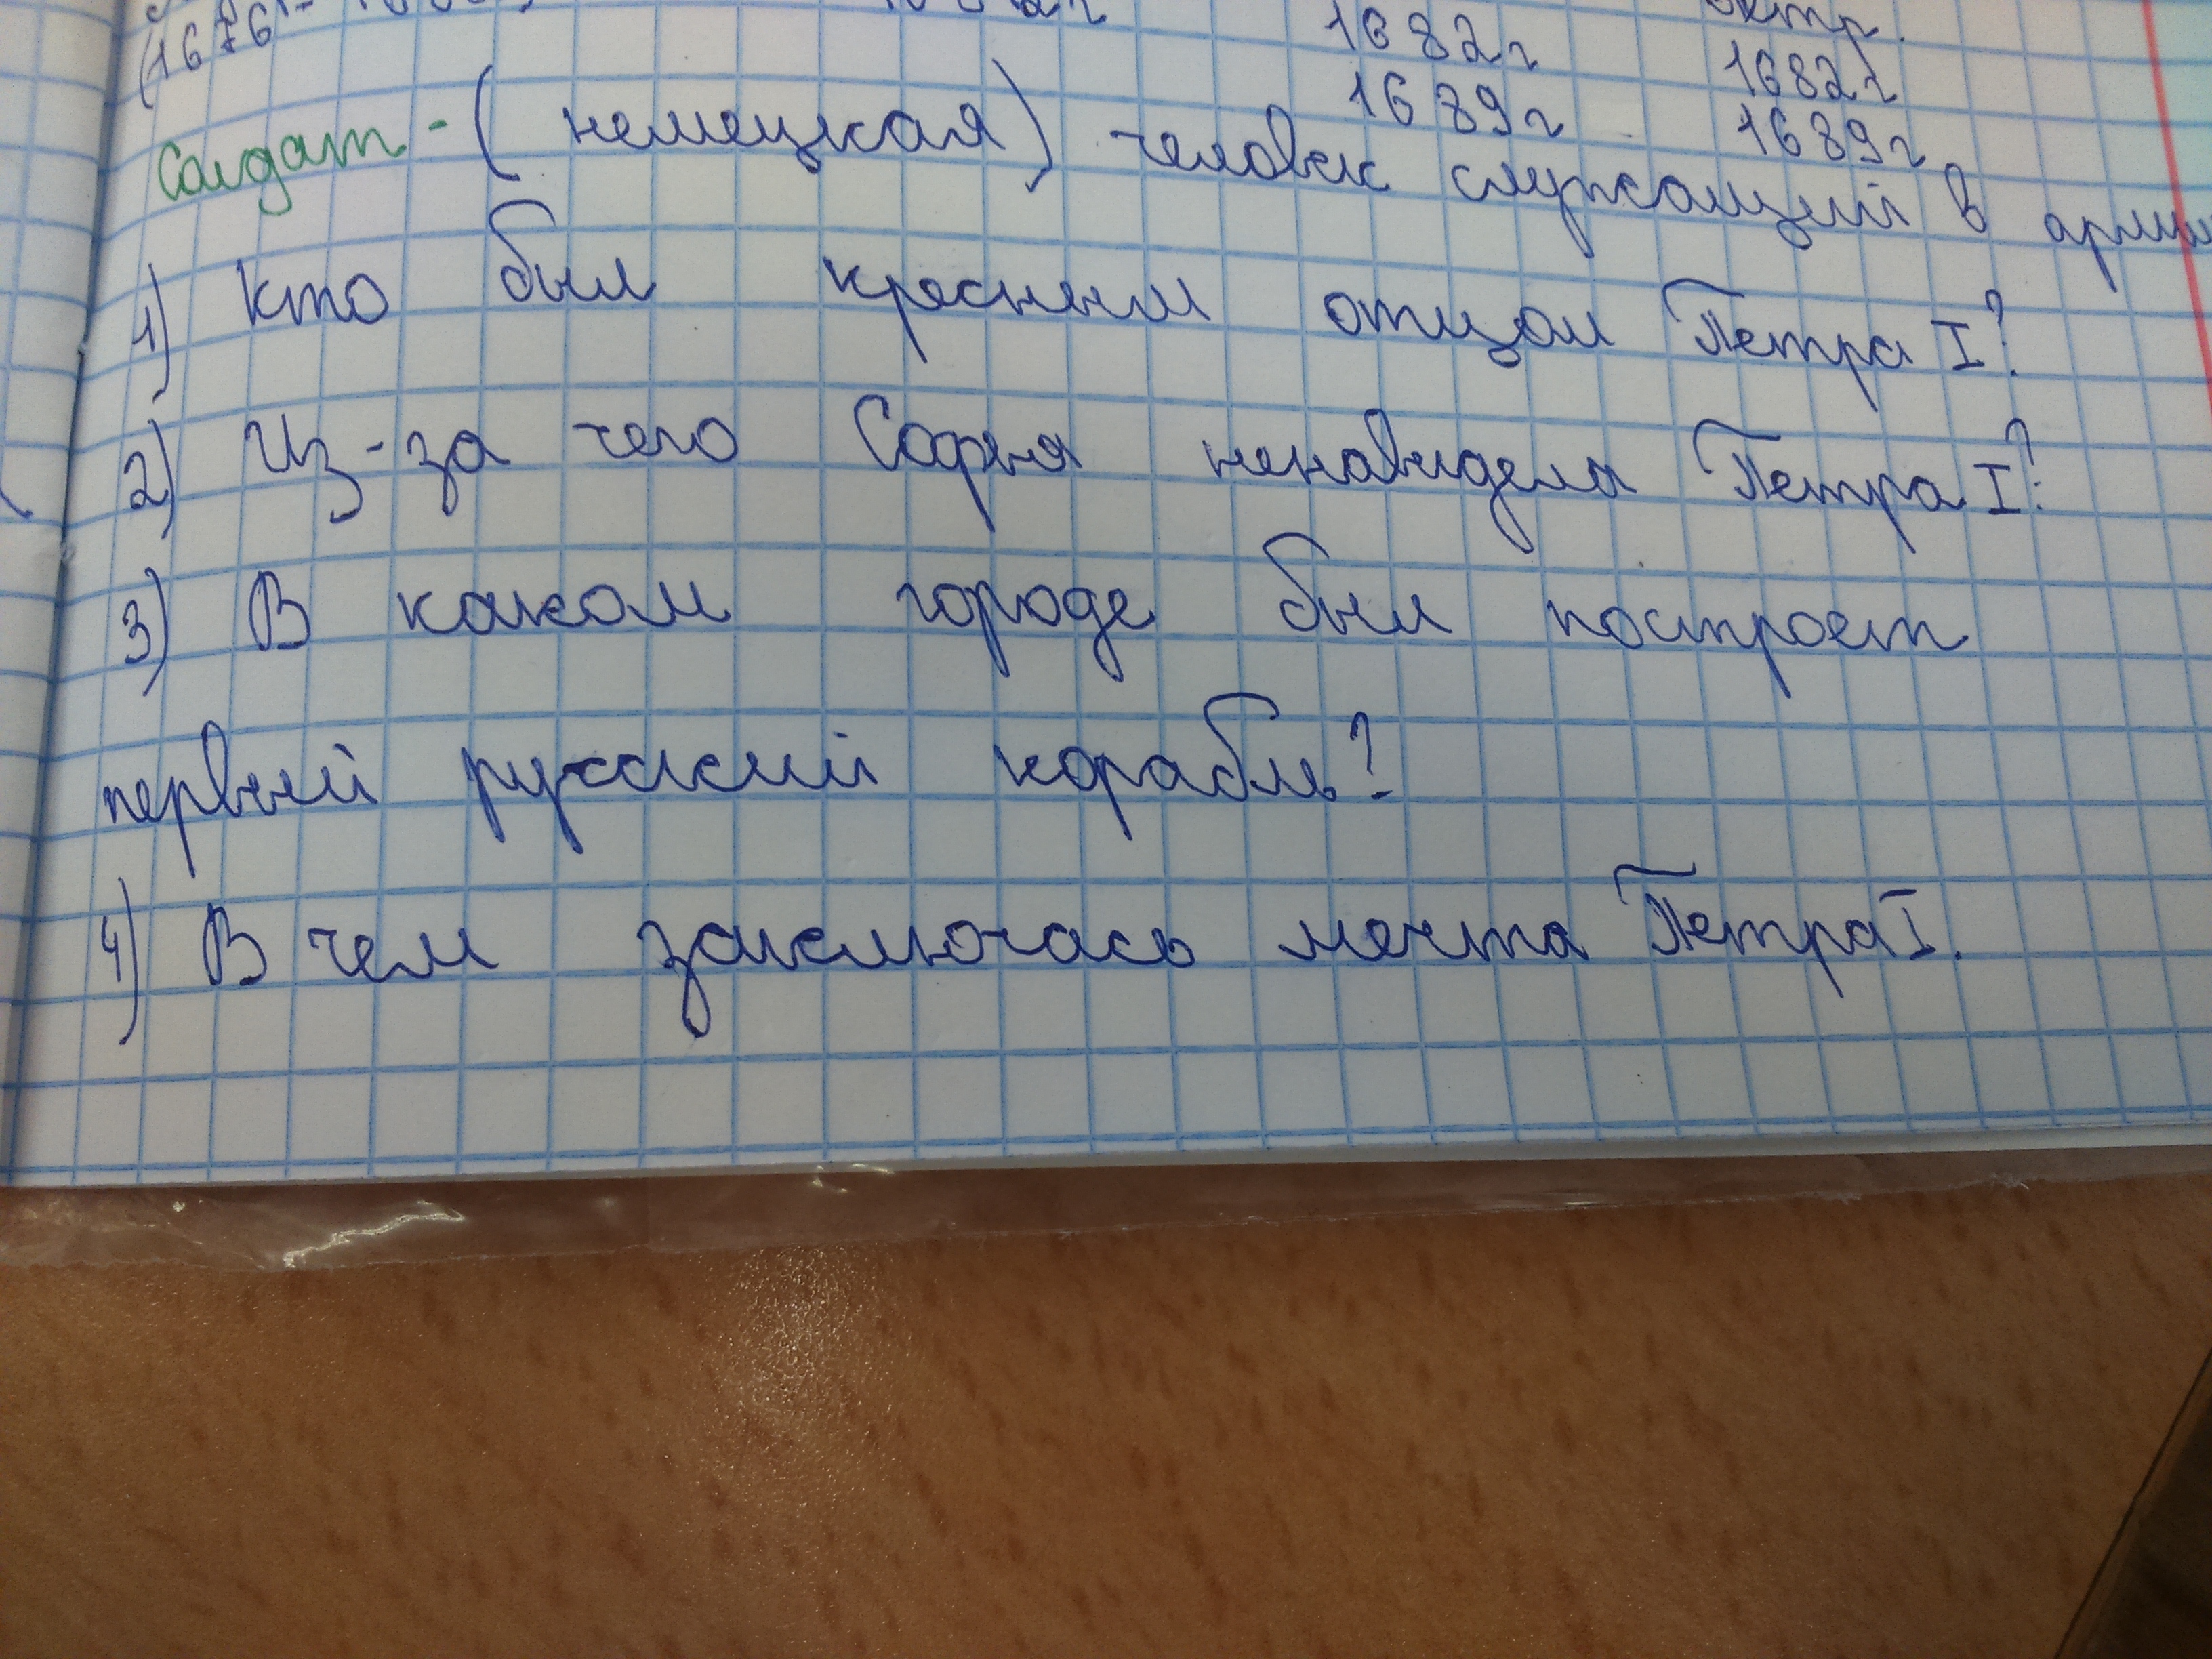 (1676
1682г
октр.
1689г
1682г
1689г
Солдат - (немецкая) человек служащий в армии
1) Кто был кресным отцом Петра I?
2) Из-за чего Софья ненавидела Петра I?
3) В каком городе был построет
первый русский корабль?
4) В чем заключась мечта Петра I.